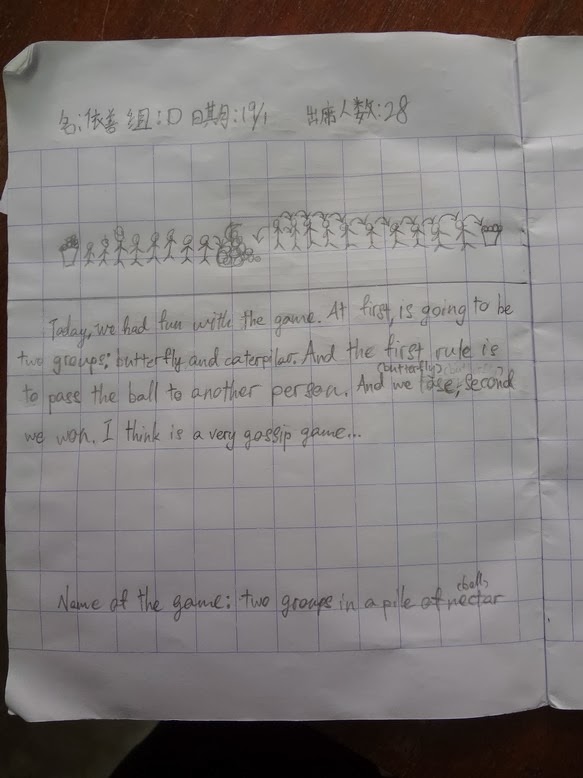 名:依善 组:D 日期:19/1 出席人数:28
Today, we had fun with the game. At first, is going to be
two groups; butterfly and caterpilar. And the first rule is
(butterfly)
to pass the ball to another person. And we lose, second
we won. I think is a very gossip game...
(ball)
Name of the game: two groups in a pile of nectar